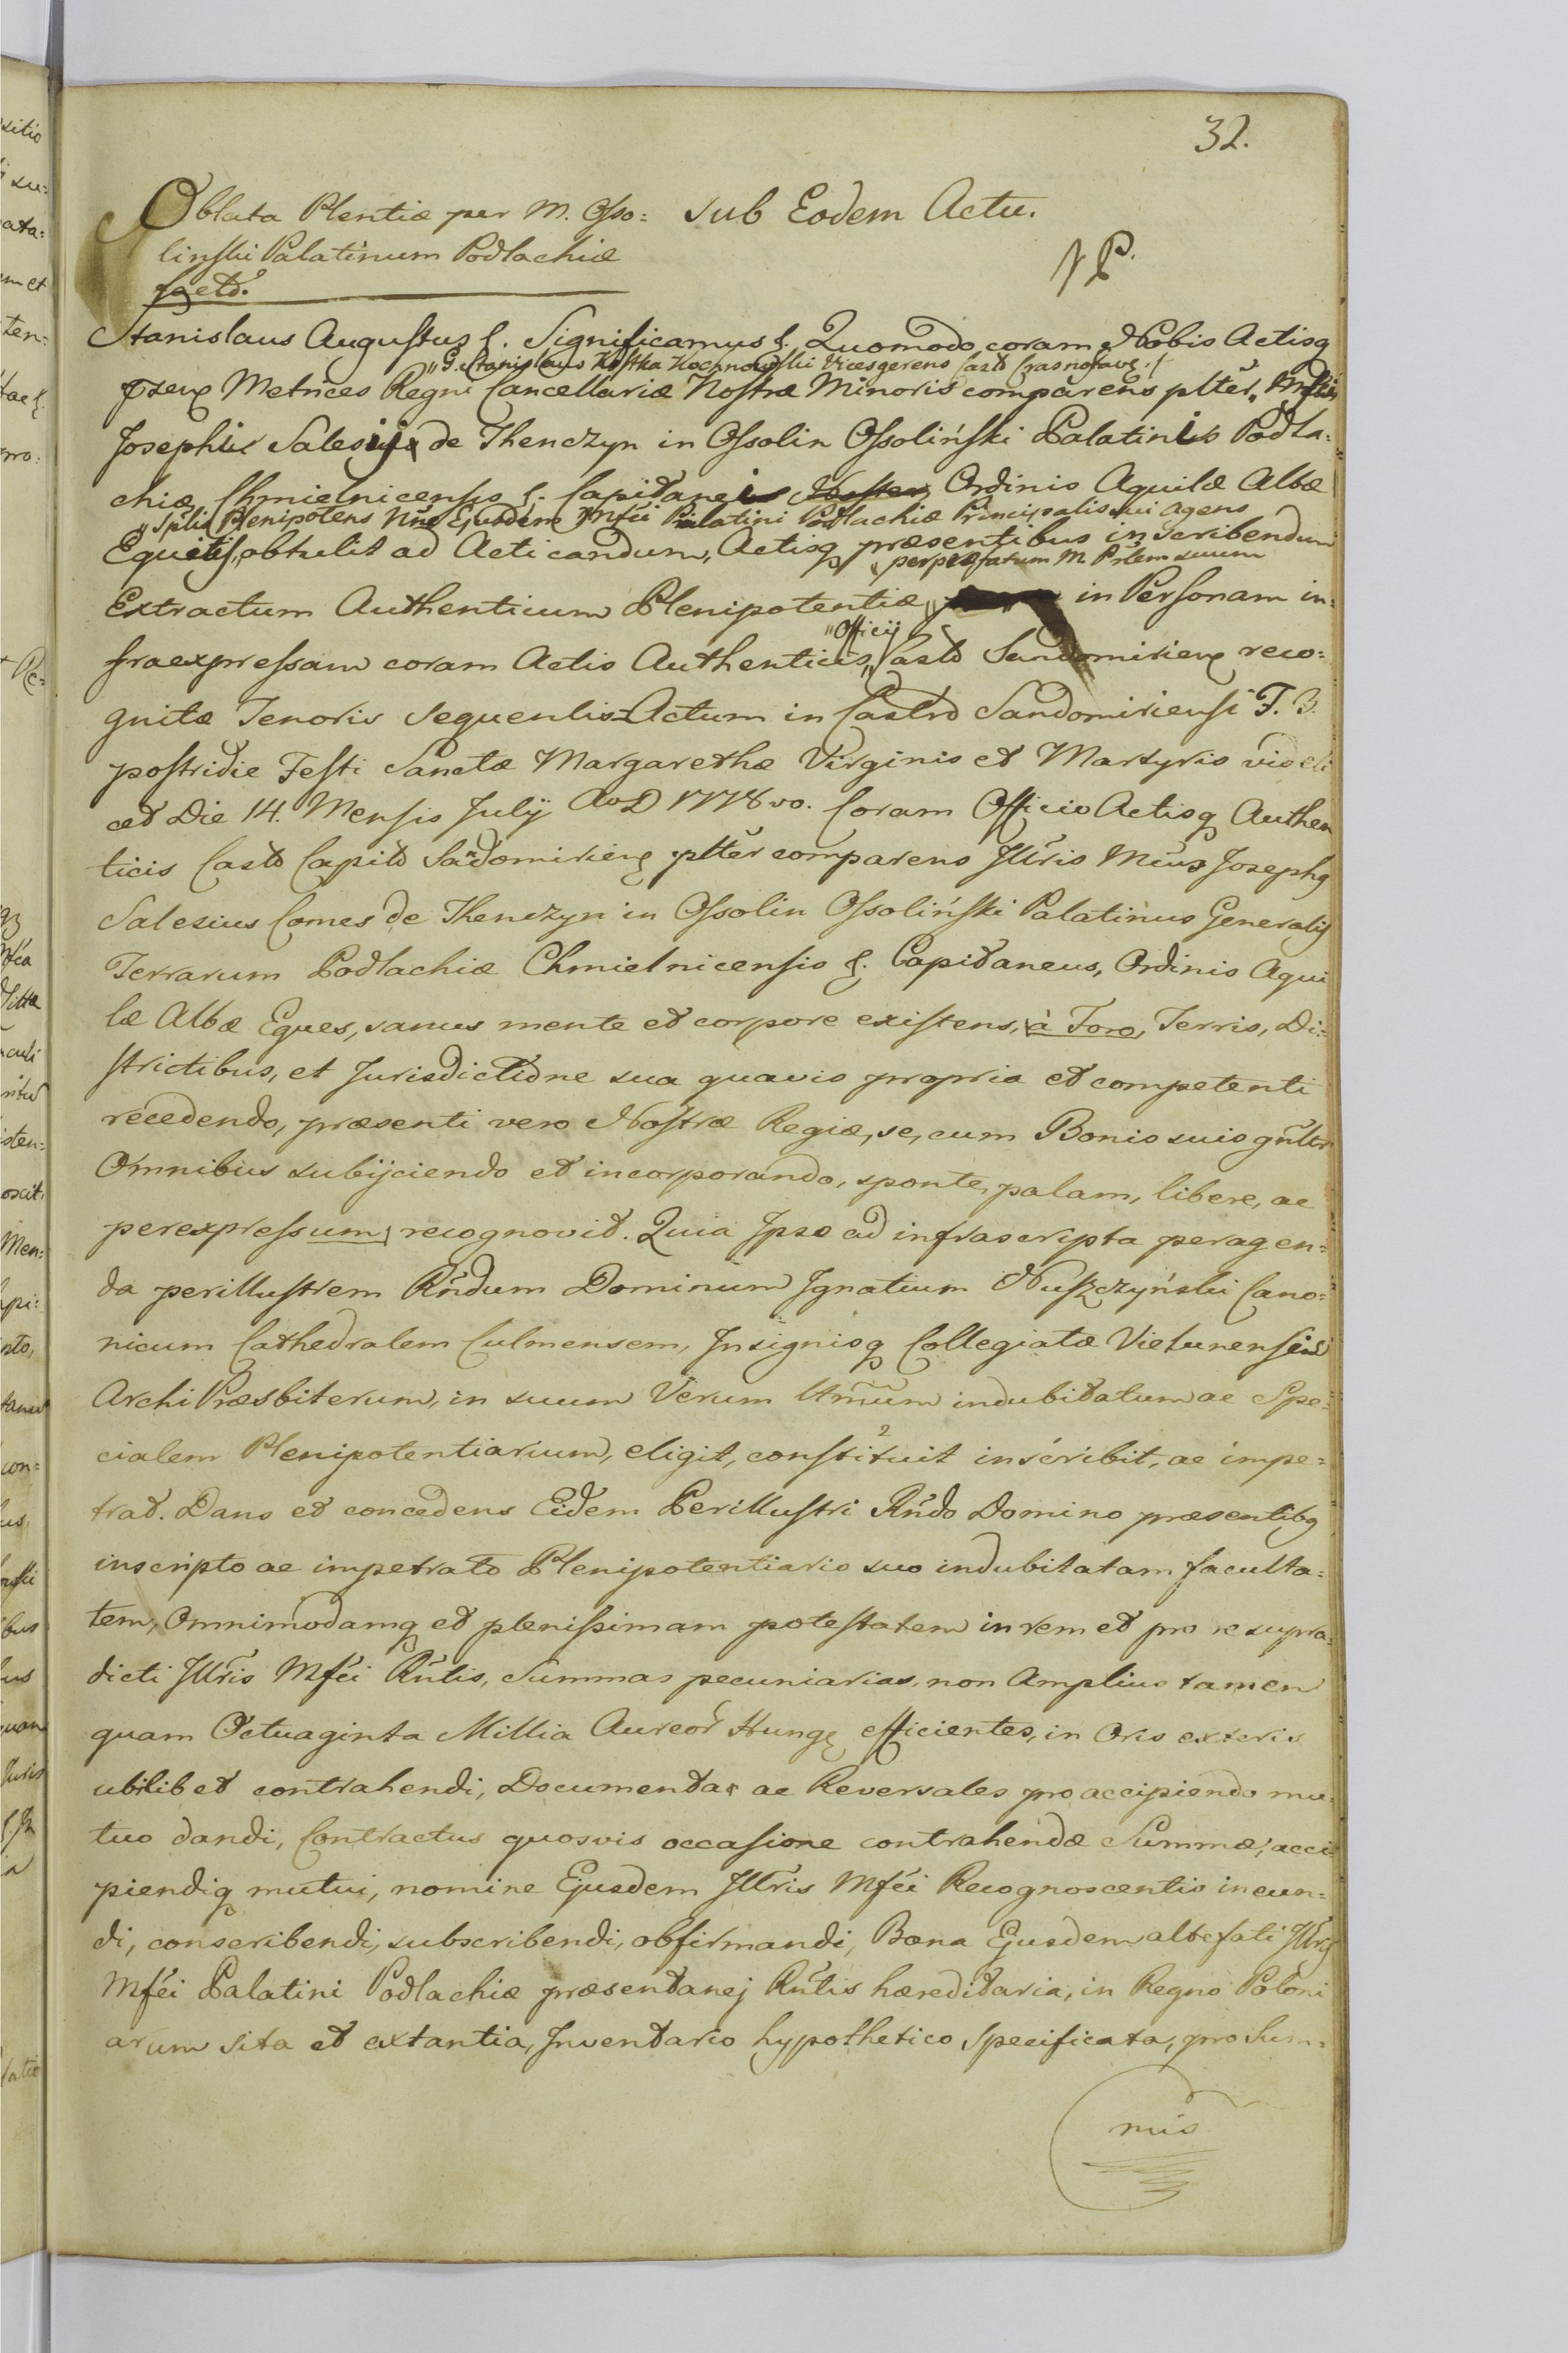 32.
Oblata Plentiæ per M. Osso= Sub Eodem Actu.
linski Palatinum Podlachiæ
factæ.
Stanislaus Augustus &. Significamus &. Quomodo coram Nobis Actisq
"G. Stanislaus Kostka Kochnowski Vicesgerens Castr Crasnostav.
præsen Metrices Regni Cancellariæ Nostræ Minoris comparens plter,,
Josephi Salesij de Thenczyn in Ossolin Ossoliński Palatini Podla=
chiæ Chmielnicensis &. Capitanei Ordinis Aquilæ Albæ
"Splis Plenipotens Nne Ejusdem Mfci Palatini Podlachiæ Principalis sui agens
Equitis, obtulit ad Acticandum, Actisq præsentibus inscribendum
per præfatum M. Prlem suum
Extractum Authenticum Plenipotentiæ,, in Personam in=
"Officij
fraexpressam coram Actis Authenticis,, Castr Sandomirien reco=
gnitæ Tenoris sequentis= Actum in Castro Sandomiriensi F. 3.
postridie Festi Sanctæ Margarethæ Virginis et Martyris videli
cet Die 14. Mensis Julij AoD 1778vo. Coram Officio Actisq Authen
ticis Castr Capit Sandomirien plter comparens Illris Mcus Josephq
Salesius Comes de Thenczyn in Ossolin Ossoliński Palatinus Generalis
Terrarum Podlachiæ Chmielnicensis &. Capitaneus, Ordinis Aqui
læ Albæ Eques, sanus mente et corpore existens, à Foro, Terris, Di=
strictibus, et Jurisdictione sua quavis propria et competenti
recedendo, præsenti vero Nostræ Regiæ, se, cum Bonis suis gnlter
Omnibus subijciendo et incorporando, sponte, palam, libere, ac
perexpressum recognovit. Quia Ipse ad infrascripta peragen=
da perillustrem Rndum Dominum Ignatium Nuszczyński Cano=
nicum Cathedralem Culmensem, Insignisq Collegiatæ Vielunensis
ArchiPræsbiterum, in suum Verum indubitatum ac Spe=
cialem Plenipotentiarium, eligit, constituit inscribit, ac impe=
trat. Dans et concedens Eidem Perillustri Rndo Domino præsentibq
inscripto ac impetrato Plenipotentiario suo indubitatam faculta=
tem, Omnimodamq et plenissimam potestatem in rem et pro re supra=
dicti Illris Mfci Rntis, Summas pecuniarias, non Amplius tamen
quam Octuaginta Millia Aureor Hung efficientes, in Oris exteris
ubilibet contrahendi, Documenta ac Reversales pro accipiendo mu=
tuo dandi, Contractus quosvis occasione contrahendæ Summæ, acci=
piendiq mutui, nomine Ejusdem Illris Mfci Recognoscentis ineun=
di, conscribendi, subscribendi, obfirmandi, Bona Ejusdem altefati Illrs
Mfci Palatini Podlachiæ præsentanej Rntis hæreditaria, in Regno Poloni
arum sita et extantia, Inventario hypothetico specificata, pro Sum=
mis